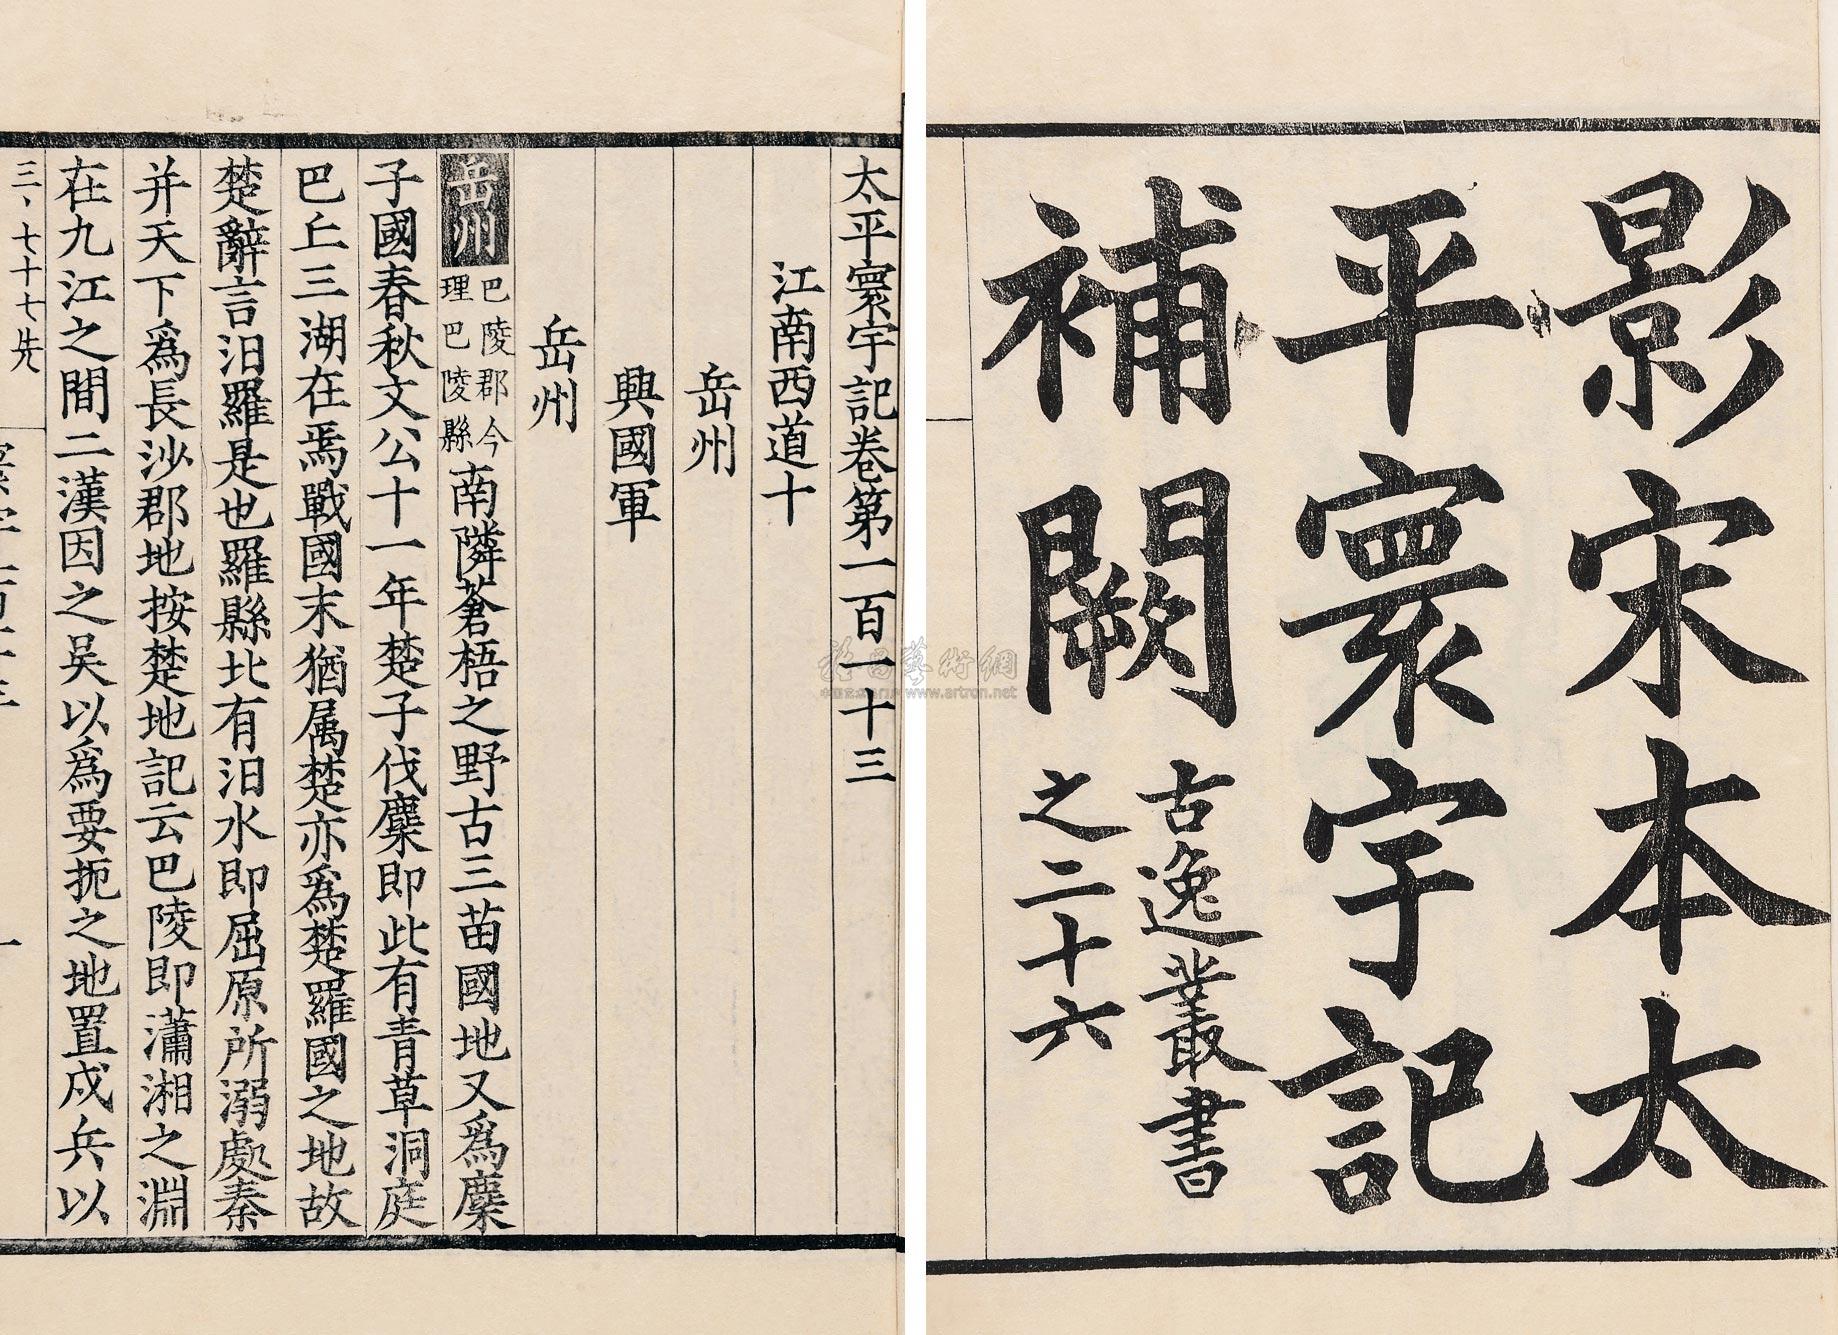 影宋本太
平寰宇記
補闕
古逸叢書
之二十六
太平寰宇記卷第一百一十三
江南西道十
岳州
興國軍
岳州
岳州
巴陵郡今
理巴陵縣
南隣蒼梧之野古三苗國地又爲麇
子國春秋文公十一年楚子伐麇即此有青草洞庭
巴丘三湖在焉戰國末猶属楚亦爲楚羅國之地故
楚辭言汨羅是也羅縣北有汨水即屈原所溺處秦
并天下爲長沙郡地按楚地記云巴陵即瀟湘之淵
在九江之間二漢因之吳以爲要扼之地置戍兵以
三、七十七先
一
雅昌藝術網
www.artron.net